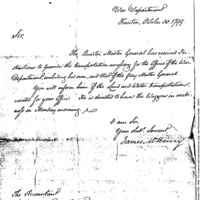 War Department
Trenton, October 30. 1799.
Sir.
The Quarter Master General has received
directions to provide the transportation necessary for the Office of the War
Department including his own, and that of the pay Master General.
You will inform him of the Land and Water transportation
wanted for your Office. He is directed to have the Waggons in readi-
ness on Monday morning
I am Sir
Your Obed Servant
James McHenry
The Accountant